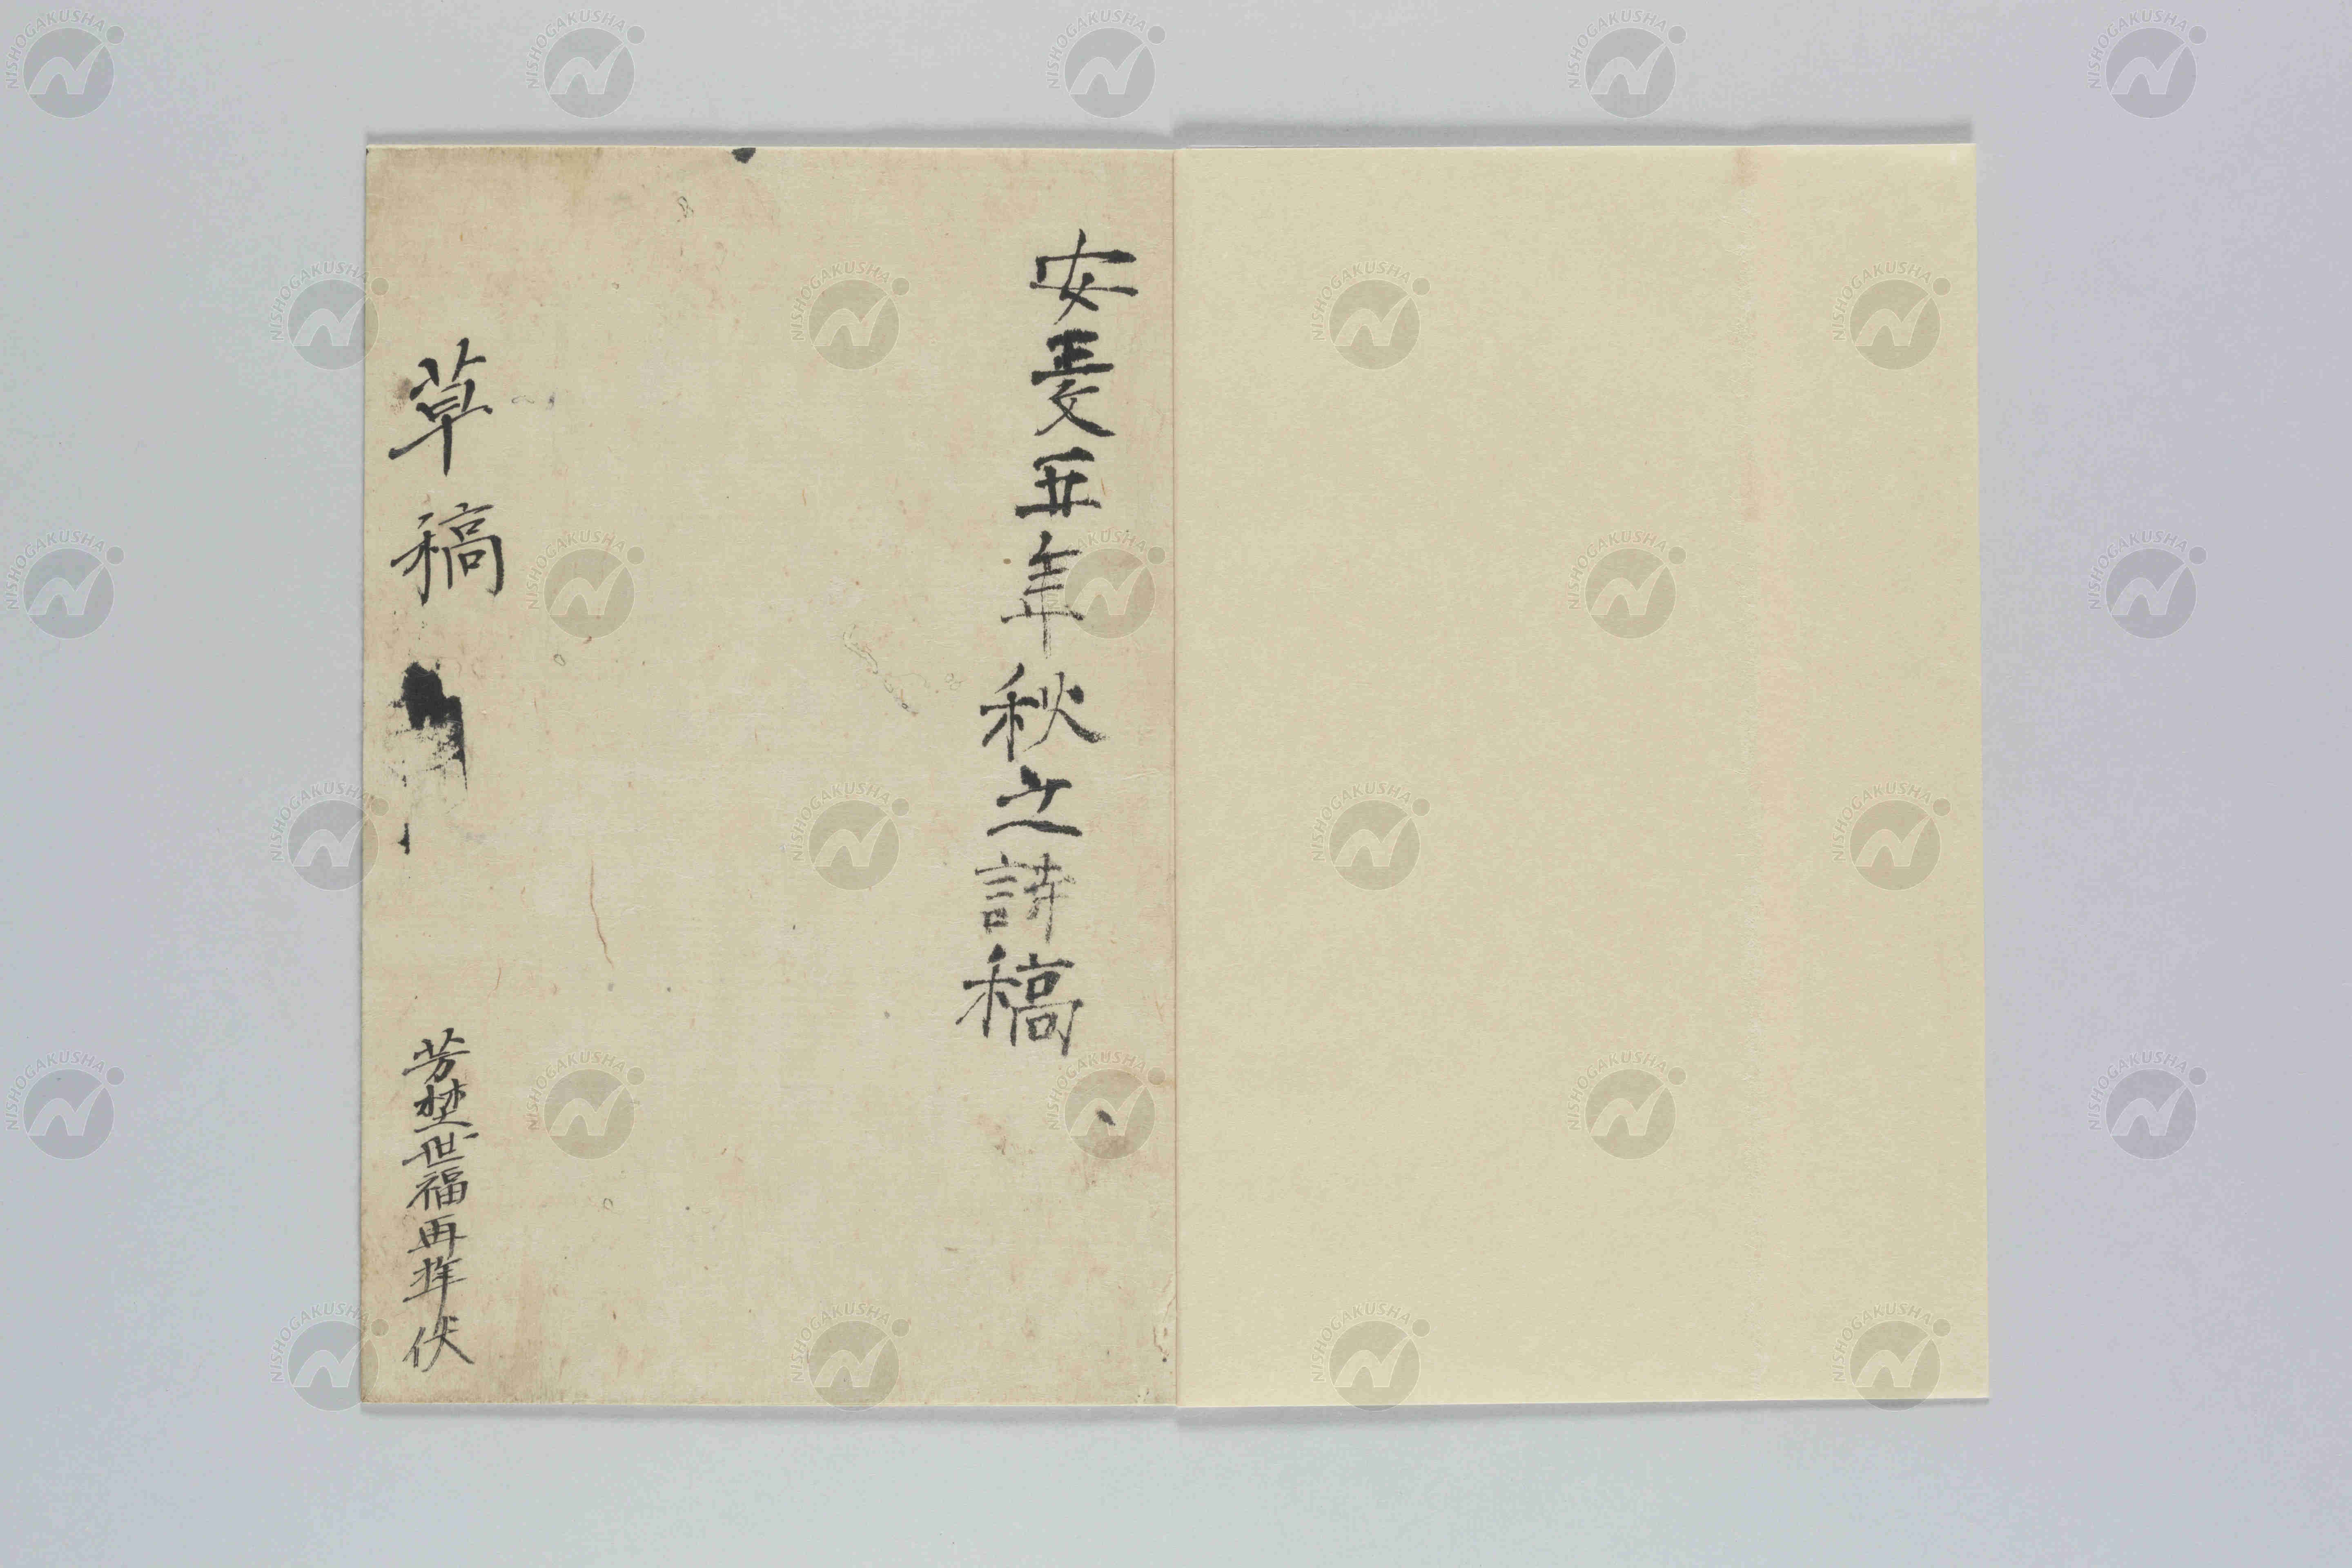 安政五年秋之詩稿
草稿
芳埜世福再拜伏
NISHOGAKUSHA